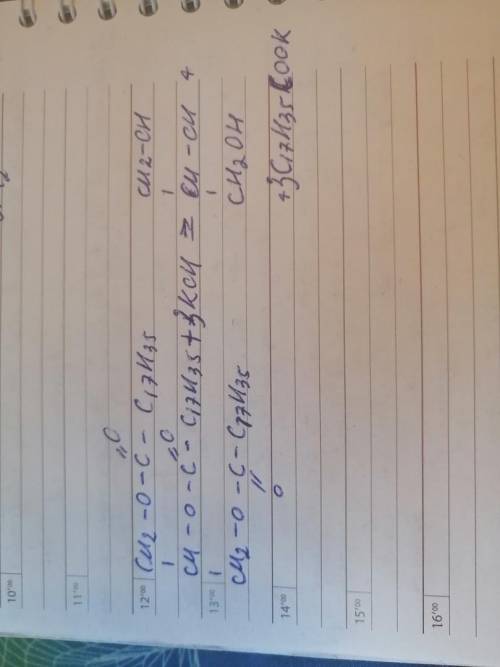 10:00
11:00
=O
12:00 CH2-O-C-C17H35 CH2-CH
| |
CH-O-C-C17H35+3KCH = CH-CH +
=O
13:00 | |
CH2-O-C-C17H35 CH2OH
=
O
14:00 +3C17H35COOK
15:00
16:00